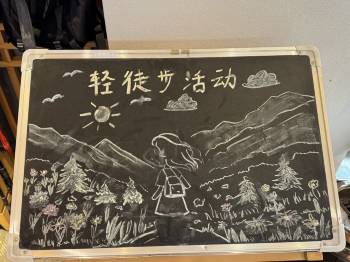 轻徒步活动